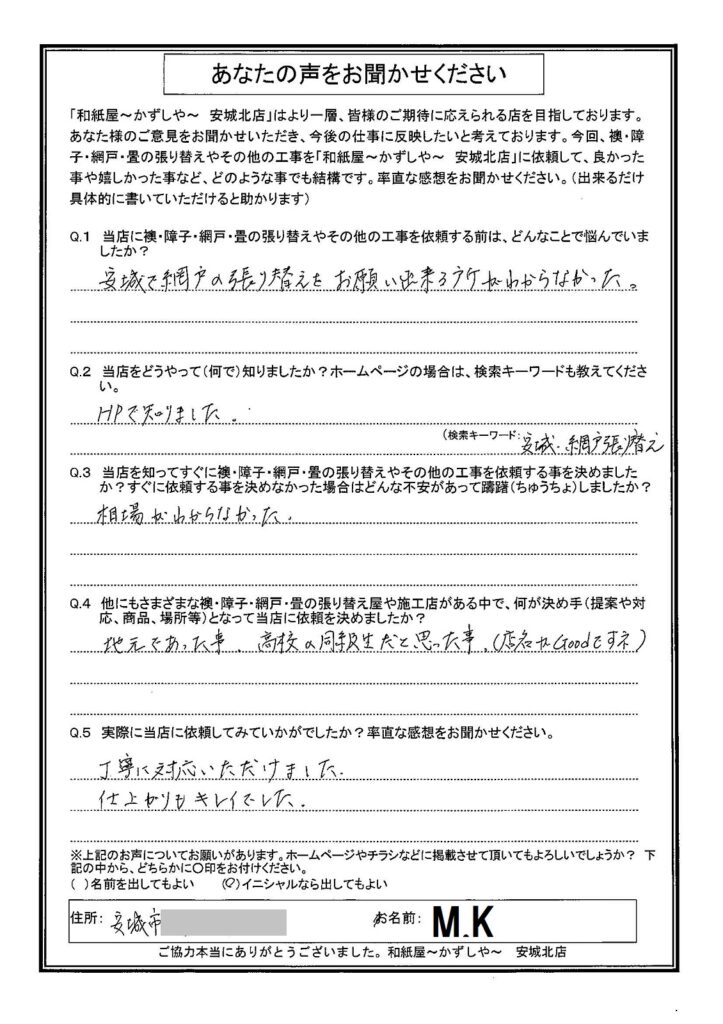 あなたの声をお聞かせください
「和紙屋～かずしや～　安城北店」はより一層、皆様のご期待に応えられる店を目指しております。
あなた様のご意見をお聞かせいただき、今後の仕事に反映したいと考えております。今回、襖・障
子・網戸・畳の張り替えやその他の工事を「和紙屋～かずしや～　安城北店」に依頼して、良かった
事や嬉しかった事など、どのような事でも結構です。率直な感想をお聞かせください。（出来るだけ
具体的に書いていただけると助かります）
Q.1　当店に襖・障子・網戸・畳の張り替えやその他の工事を依頼する前は、どんなことで悩んでいま
したか？
安城で網戸の張り替えをお願い出来るﾄｺがわからなかった。
Q.2　当店をどうやって（何で）知りましたか？ホームページの場合は、検索キーワードも教えてくださ
い。
HPで知りました。
（検索キーワード：安城・網戸張り替え
Q.3　当店を知ってすぐに襖・障子・網戸・畳の張り替えやその他の工事を依頼する事を決めました
か？すぐに依頼する事を決めなかった場合はどんな不安があって躊躇（ちゅうちょ）しましたか？
相場がわからなかった。
Q.4　他にもさまざまな襖・障子・網戸・畳の張り替え屋や施工店がある中で、何が決め手（提案や対
応、商品、場所等）となって当店に依頼を決めましたか？
地元であった事。高校の同級生だと思った事。（店名がGoodですネ）
Q.5　実際に当店に依頼してみていかがでしたか？率直な感想をお聞かせください。
丁寧に対応いただけました。
仕上がりもキレイでした。
※上記のお声についてお願いがあります。ホームページやチラシなどに掲載させて頂いてもよろしいでしょうか？　下
記の中から、どちらかに〇印をお付けください。
（　）名前を出してもよい　　（〇）イニシャルなら出してもよい
住所：安城市　お名前：M.K
ご協力本当にありがとうございました。和紙屋～かずしや～　安城北店